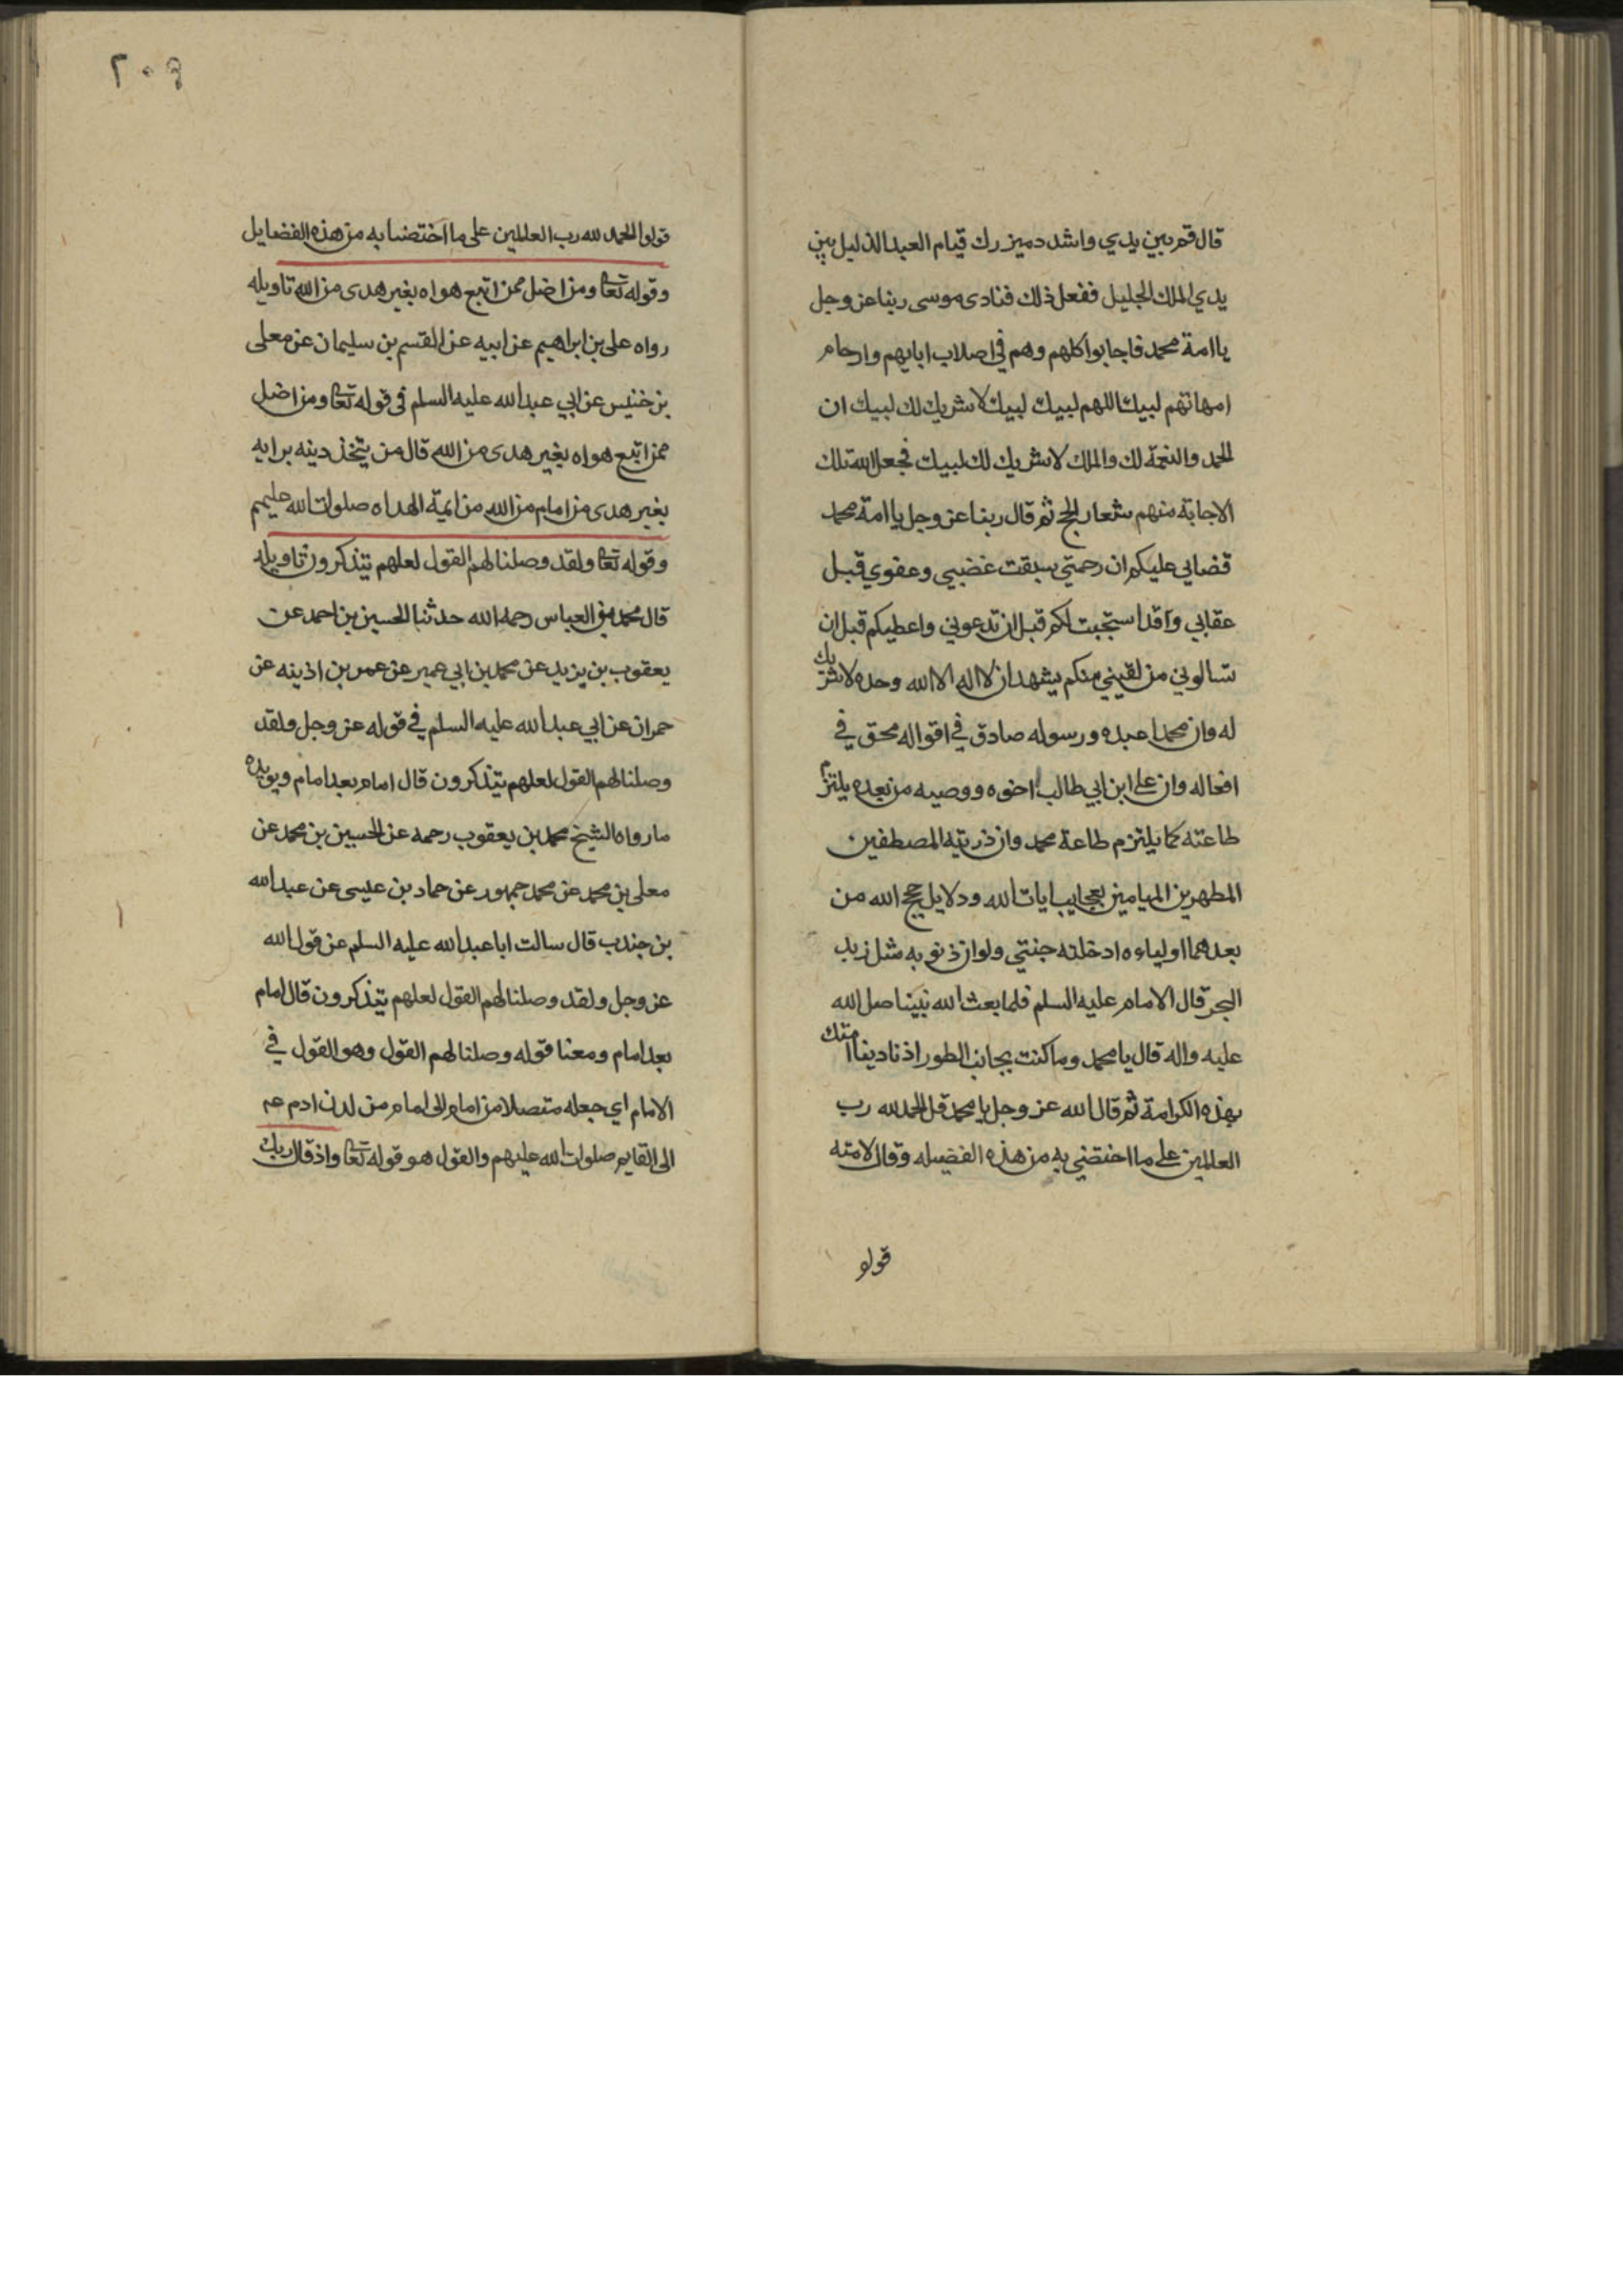 قال قم بين يدي واشدد ميزرك قيام العبد الذليل بين
يدي الملك الجليل ففعل ذلك فنادى موسى ربنا عز وجل
يا امة محمد فاجابوا كلهم وهم في اصلاب ابايهم وارحام
امهاتهم لبيك اللهم لبيك لبيك لا شريك لك لبيك ان
الحمد والنعمة لك والملك لا شريك لك لبيك فجعل الله تلك
الاجابة منهم شعار الحج ثم قال ربنا عز وجل يا امة محمد
قضايي عليكم ان رحمتي سبقت غضبي وعفوي قبل
عقابي وقد استجبت لكم قبل ان تدعوني واعطيكم قبل ان
تسالوني من لقيني منكم يشهد ان لا اله الا الله وحده لا شريك
له وان محمدا عبده ورسوله صادق في اقواله محق في
افعاله وان علي ابن ابي طالب اخوه ووصيه من بعده يلتزم
طاعته كما يلتزم طاعة محمد وان ذريته المصطفين
المطهرين الميامين بعجايب ايات الله ودلايل حجج الله من
بعدهما اولياءه ادخلته جنتي ولو ان ذنوبه مثل زبد
البحر قال الامام عليه السلم فلما بعث الله نبينا صل الله
عليه واله قال يا محمد وما كنت بجانب الطور اذ نادينا امتك
بهذه الكرامة ثم قال الله عز وجل يا محمد قل الحمد لله رب
العالمين على ما اختصني به من هذه الفضيله وقال لامته
قولو
٢٠٤
قولوا الحمد لله رب العالمين على ما اختصنا به من هذه الفضايل
وقوله تعا ومن اضل ممن اتبع هواه بغير هدى من الله تاويله
رواه على بن ابراهيم عن ابيه عن القسم بن سليمان عن معلى
بن خنيس عن ابي عبد الله عليه السلم فى قوله تعا ومن اضل
ممن اتبع هواه بغير هدى من الله قال من يتخذ دينه برايه
بغير هدى من امام من الله من ايمة الهداه صلوات الله عليهم
وقوله تعا ولقد وصلنا لهم القول لعلهم يتذكرون تاويله
قال محمد بن العباس رحمه الله حدثنا الحسين بن احمد عن
يعقوب بن يزيد عن محمد بن ابي عمير عن عمر بن اذينه عن
حمران عن ابي عبد الله عليه السلم في قوله عز وجل ولقد
وصلنا لهم القول لعلهم يتذكرون قال امام بعد امام ويويده
ما رواه الشيخ محمد بن يعقوب رحمه عن الحسين بن محمد عن
معلى بن محمد عن محمد جمهور عن حماد بن عيسى عن عبد الله
بن جندب قال سالت ابا عبد الله عليه السلم عن قول الله
عز وجل ولقد وصلنا لهم القول لعلهم يتذكرون قال امام
بعد امام ومعنا قوله وصلنا لهم القول وهو القول في
الامام اي جعله متصلا من امام الى امام من لدن ادم عم
الى القايم صلوات الله عليهم والقول هو قوله تعا واذ قال ربك